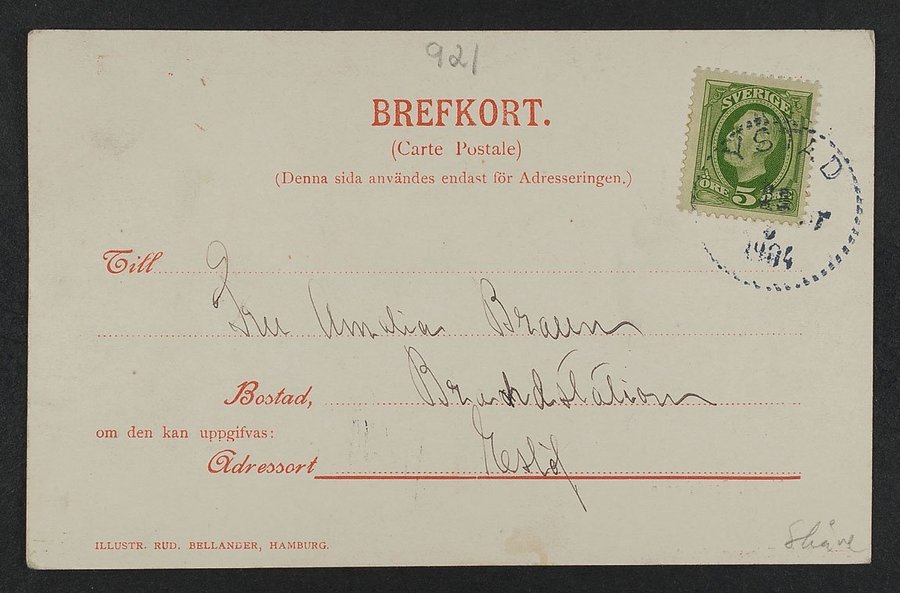 921
BREFKORT.
(Carte Postale)
(Denna sida användes endast för Adresseringen.)
SVERIGE
5 ÖRE 5
YSTAD
1904
Till
Fru Amalia Braun
Bostad, Brandstation
om den kan uppgifvas:
Adressort
ILLUSTR. RUD. BELLANDER, HAMBURG.
Skåne